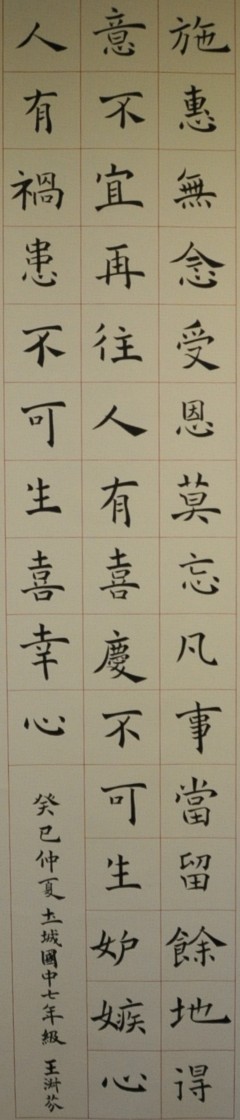 施惠無念受恩莫忘凡事當留餘地得
意不宜再往人有喜慶不可生妒嫉心
人有禍患不可生喜幸心
癸巳仲夏土城國中七年級 王淑芬